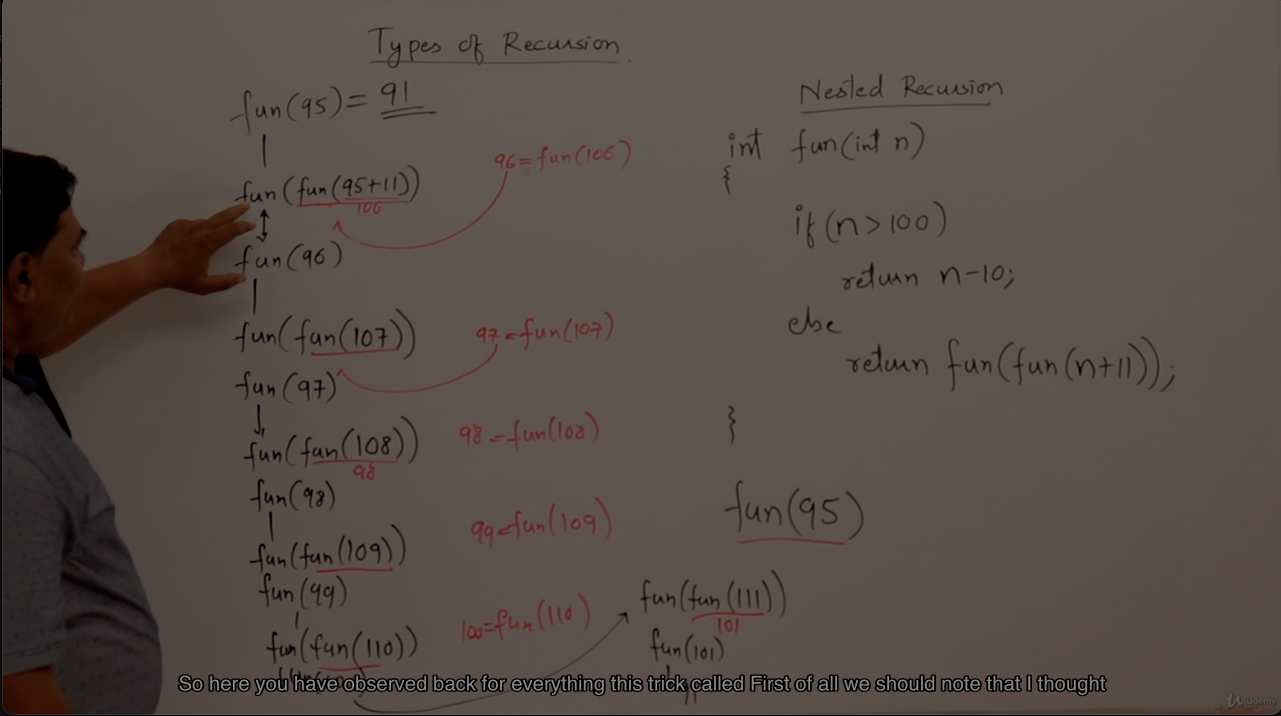 Types of Recursion.
fun(95) = 91
fun(fun(95+11))
106
96=fun(106)
fun(96)
fun(fun(107))
97=fun(107)
fun(97)
fun(fun(108))
98
98=fun(108)
fun(98)
fun(fun(109))
99=fun(109)
fun(99)
fun(fun(110))
100=fun(110)
fun(fun(111))
101
fun(101)
Nested Recursion
int fun(int n)
{
if(n>100)
return n-10;
else
return fun(fun(n+11));
}
fun(95)
So here you have observed back for everything this trick called First of all we should note that I thought
Udemy